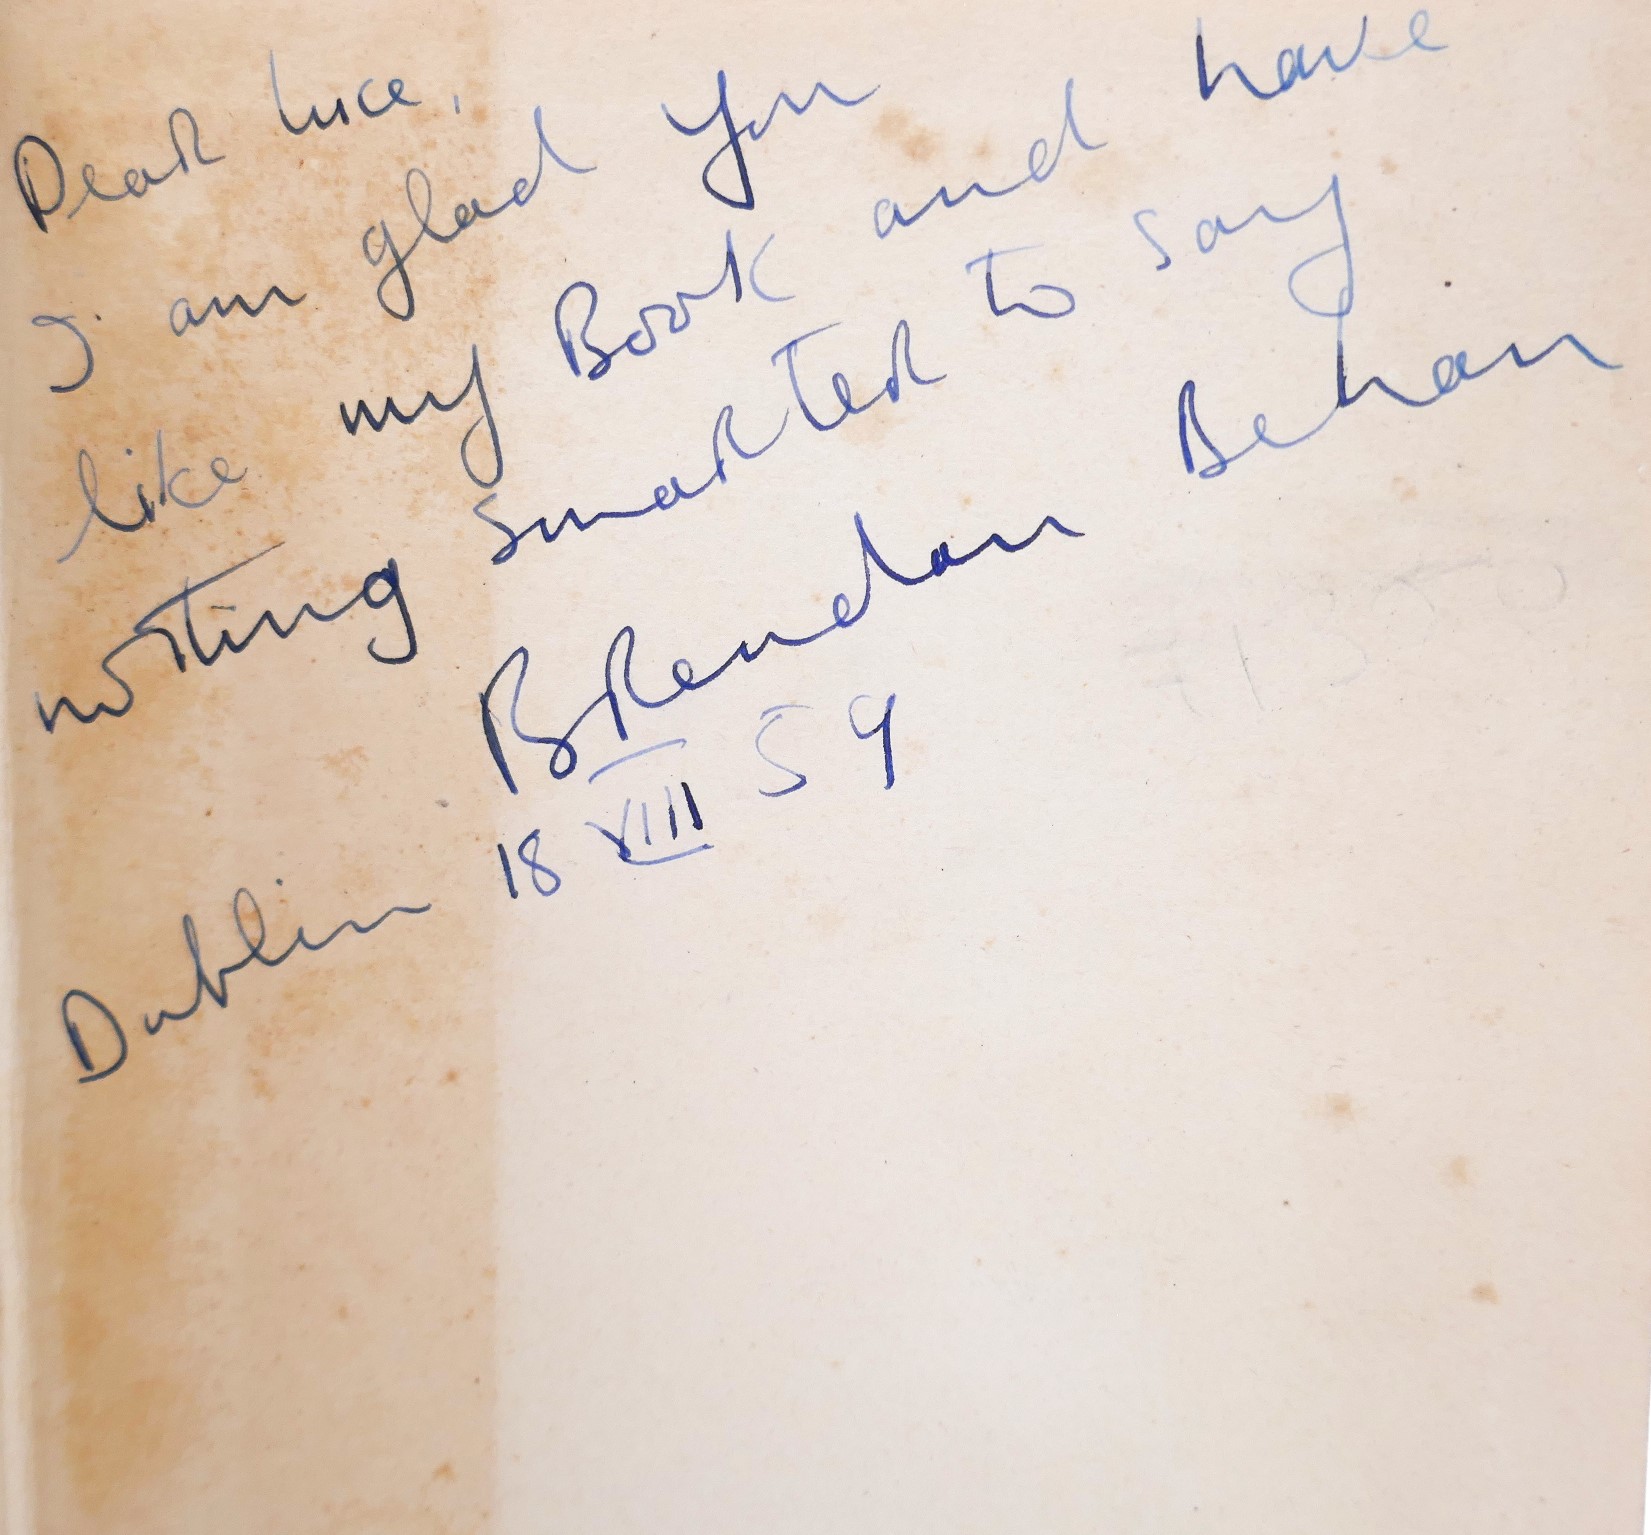 Dear Luce,
I am glad you
like my Book and have
notting smarter to say
Brendan Behan
Dublin 18 VIII 59